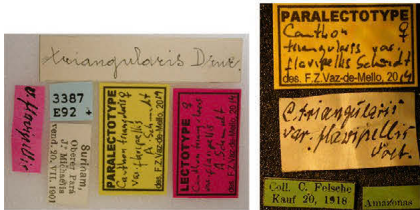 triangularis Drur.
v. flavipellis
3387
E92 +
Surinam.
Oberer Pará
J. Michaelis
vend. VII. 1901
PARALECTOTYPE
Canthon triangularis ♀
var. flavipellis
A. Schmidt
des. F.Z.Vaz-de-Mello, 2014
LECTOTYPE ♀
Canthon triangularis
var. flavipellis
A. Schmidt
des. F.Z.Vaz-de-Mello, 2014
PARALECTOTYPE
Canthon ♀
triangularis var.
flavipellis Schmidt
des. F.Z.Vaz-de-Mello, 2014
C. triangularis
var. flavipellis
Coll. C. Felsche
Kauf 20, 1918
Amazonas